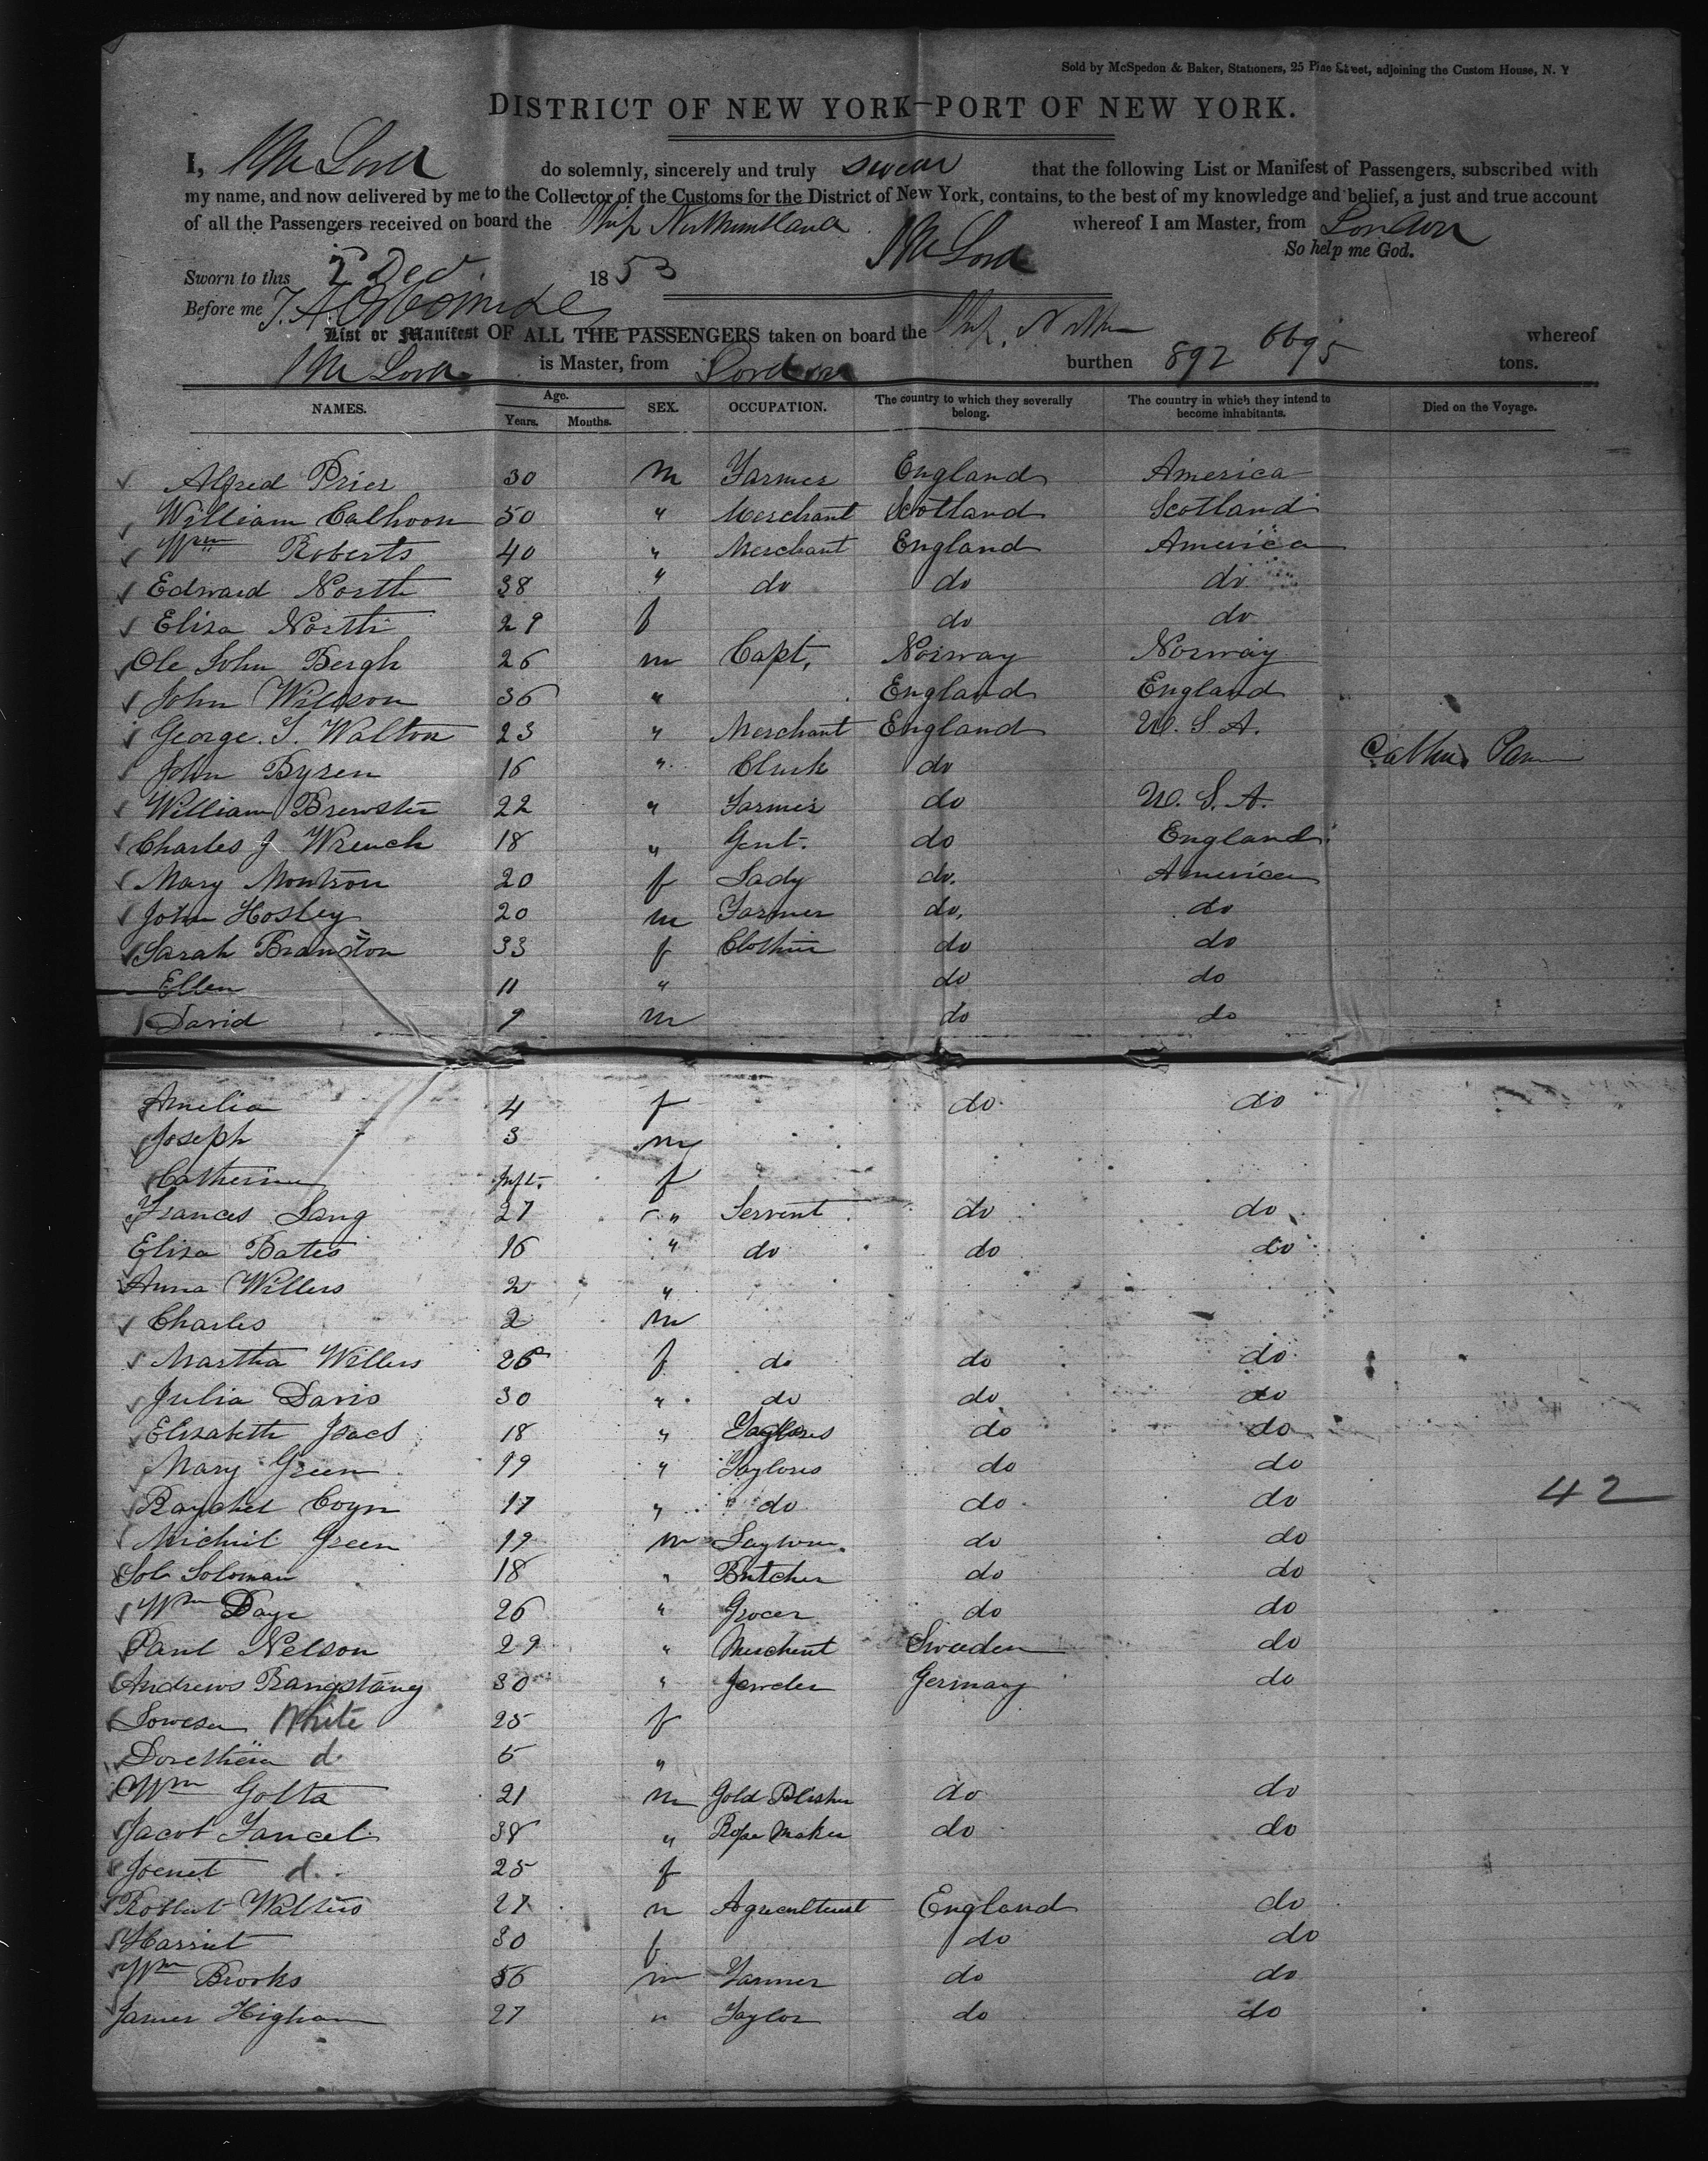 Sold by McSpedon & Baker, Stationers, 25 Pine Street, adjoining the Custom House, N. Y
DISTRICT OF NEW YORK—PORT OF NEW YORK.
I, Lord do solemnly, sincerely and truly swear that the following List or Manifest of Passengers, subscribed with
my name, and now delivered by me to the Collector of the Customs for the District of New York, contains, to the best of my knowledge and belief, a just and true account
of all the Passengers received on board the Ship Northumberland whereof I am Master, from London
Lord So help me God.
Sworn to this 2 Dec 1853
Before me
List or Manifest OF ALL THE PASSENGERS taken on board the Ship. whereof
Lord is Master, from London burthen 892 tons.
NAMES. Age. Years. Months. SEX. OCCUPATION. The country to which they severally belong. The country in which they intend to become inhabitants. Died on the Voyage.
Alfred Prier 30 m Farmer England America
William Calhoon 50 " Merchant Scotland Scotland
Wm Roberts 40 " Merchant England America
Edward North 38 " do do do
Eliza North 29 f do do
Ole John Bergh 26 m Capt, Norway Norway
John Willson 36 " England England
George. S. Walton 23 " Merchant England U. S. A.
John Byren 16 " Clerk do
William Brewster 22 " Farmer do U. S. A.
Charles J Wrench 18 " Gent. do England
Mary Montron 20 f Lady do. America
John Hosley 20 m Farmer do, do
Sarah Brandon 33 f do do
Ellen 11 " do do
David 9 m do do
Amelia 4 f do do
Joseph 3 m
Catherine Inft. f
Frances Lang 27 " Servent do do
Eliza Bates 16 " do do do
Anna Willers 2 "
Charles 2 m
Martha Willers 26 f do do do
Julia Davis 30 " do do do
Elisabeth Isacs 18 " Taylores do do
Mary Green 19 " Taylores do do
Raychel Coyn 17 " " do do do
42
Michiel Green 19 m do do
Sol Soloman 18 " Butcher do do
Wm Daye 26 " Grocer do do
Paul Nelson 29 " Merchent Sweeden do
Andrews Rangstang 30 " Jeweler Germany do
Lowesa White 25 f
Dorethea d. 6 "
Wm Golta 21 m Gold do do
Jacob Fancet 38 " Rope Maker do do
Joenet d. 25 f
Robbert Walters 27 m England do
Harriet 30 f do do
Wm Brooks 56 m Farmer do do
James Higham 27 " Taylor do do